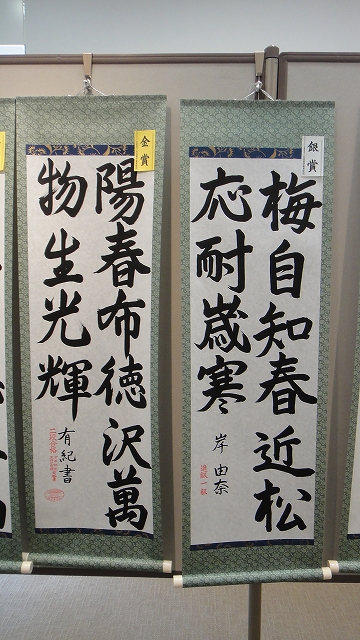 銀賞
梅自知春近松
応耐歳寒
岸由奈
金賞
陽春布徳沢萬
物生光輝
有紀書